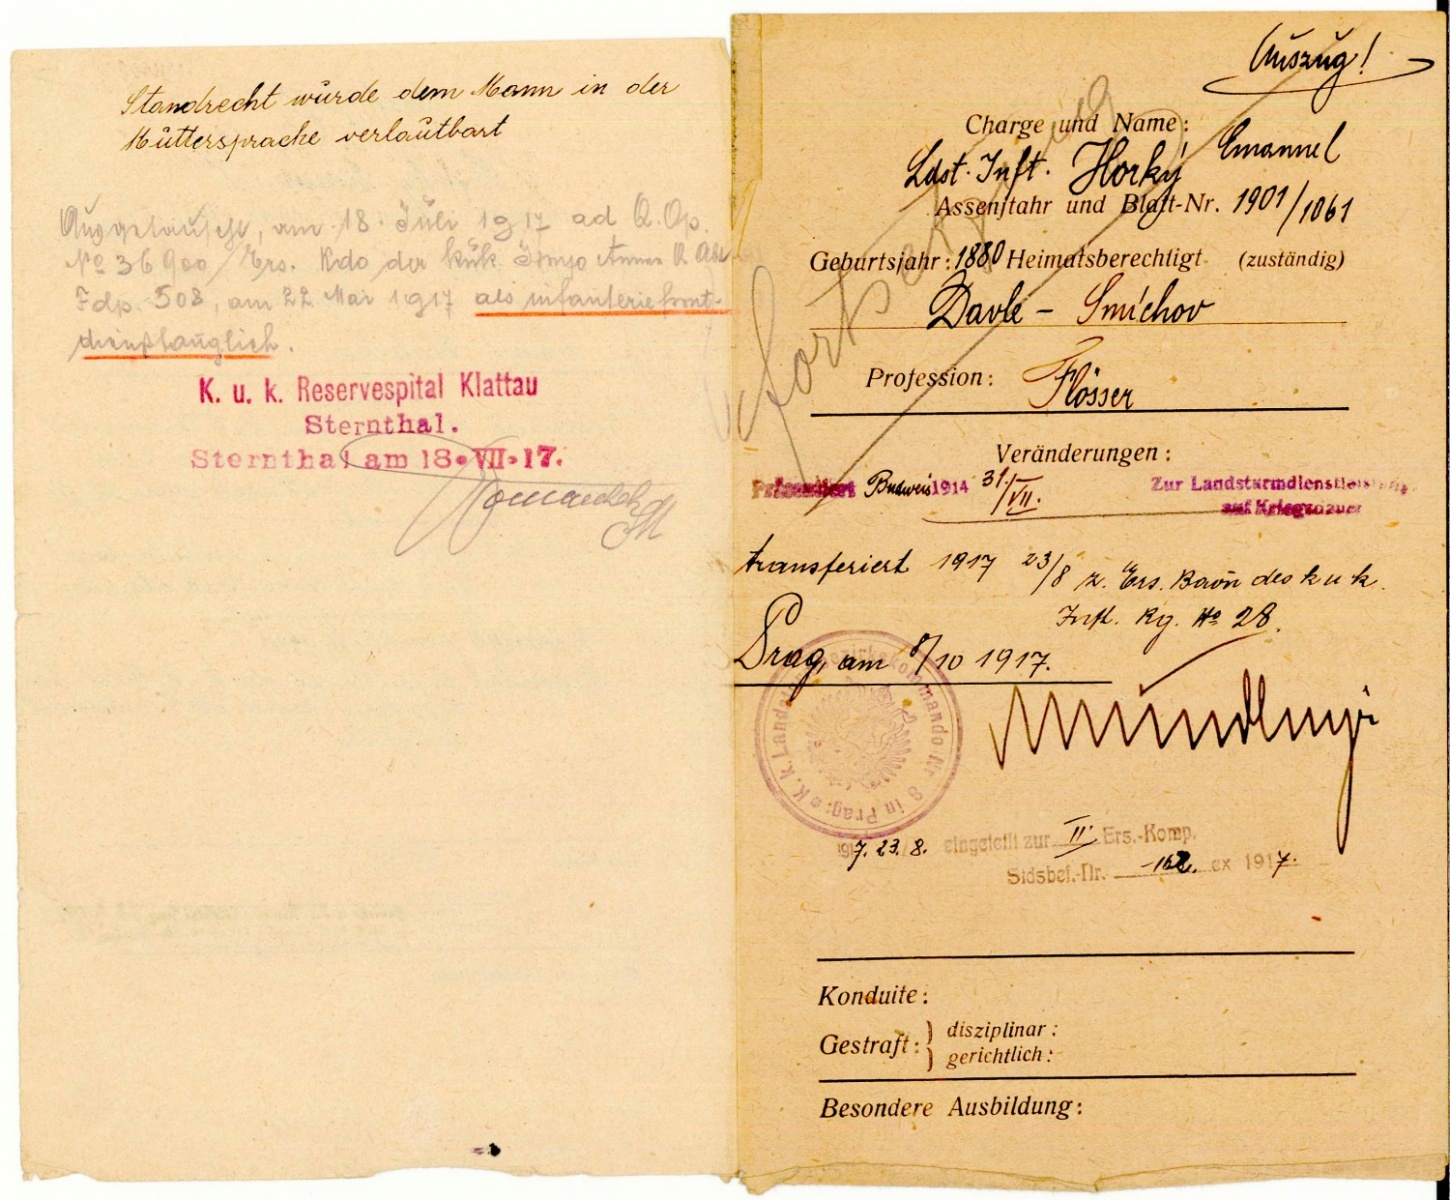 Standrecht wurde dem Mann in der
Muttersprache verlautbart
Ausgetauscht, am 18. Juli 1917 ad Q. Op.
No 36900 / Ers. Kdo der k.u.k.
Fdp. 508, am 22 Mai 1917 als infanteriefront-
diensttauglich.
K. u. k. Reservespital Klattau
Sternthal.
Sternthal am 18. VII. 17.
Auszug!
Fortsetzung
Charge und Name:
Ldst. Inft. Horký Emanuel
Assentjahr und Blatt-Nr. 1901/1061
Geburtsjahr: 1880 Heimatsberechtigt (zuständig)
Davle - Smíchov
Profession: Flösser
Veränderungen:
Präsentiert Budweis 1914 31./VII. Zur Landsturmdienstleistung
auf Kriegsdauer
transferiert 1917 23/8 z. Ers. Baon des k u k.
Inft. Rg. No 28.
Prag, am 8/10 1917.
K. k. Landsturmbezirkskommando Nr 8 in Prag
1917. 23. 8. eingeteilt zur II. Ers.-Komp.
Stdsbef.-Nr. 162. ex 1917.
Konduite:
Gestraft: } disziplinar:
} gerichtlich:
Besondere Ausbildung: